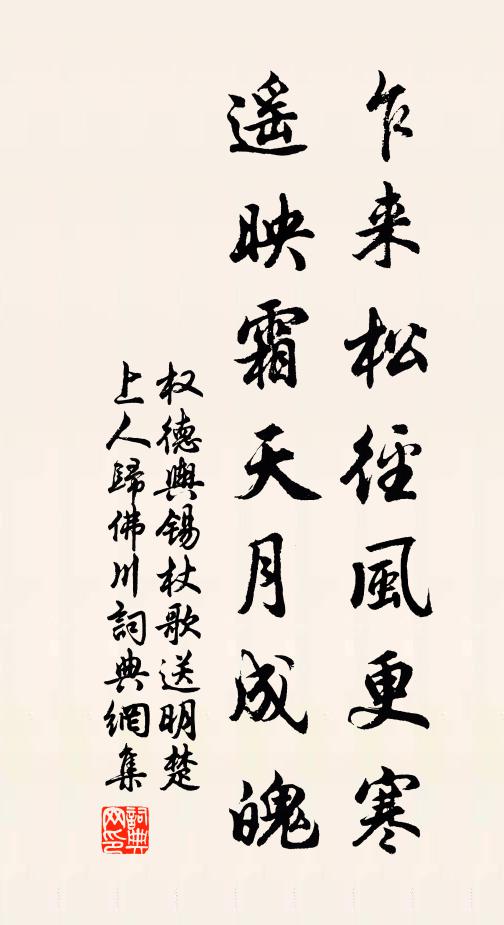 乍来松徑風更寒
遥映霜天月成魄
权德輿锡杖歌送明楚
上人歸佛川詞典網集
詞典網印